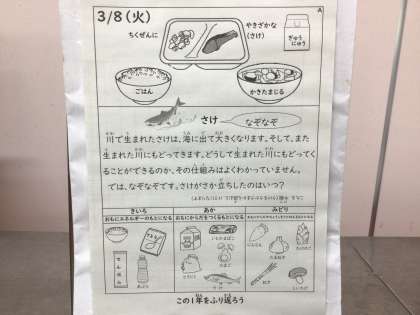 3/8(火)
A
ちくぜんに
やきざかな
(さけ)
ぎゅう
にゅう
ごはん
かきたまじる
さけ
なぞなぞ
川で生まれたさけは、海に出て大きくなります。そして、また
生まれた川にもどってきます。どうして生まれた川にもどってく
ることができるのか、その仕組みはよくわかっていません。
では、なぞなぞです。さけがさか立ちしたのはいつ?
きいろ
あか
みどり
おもにエネルギーのもとになる
おもにからだをつくるもとになる
さとう
でんぷん
あぶら
とりにく
たまご
さけ
にんじん
たまねぎ
たけのこ
しいたけ
この1年をふり返ろう